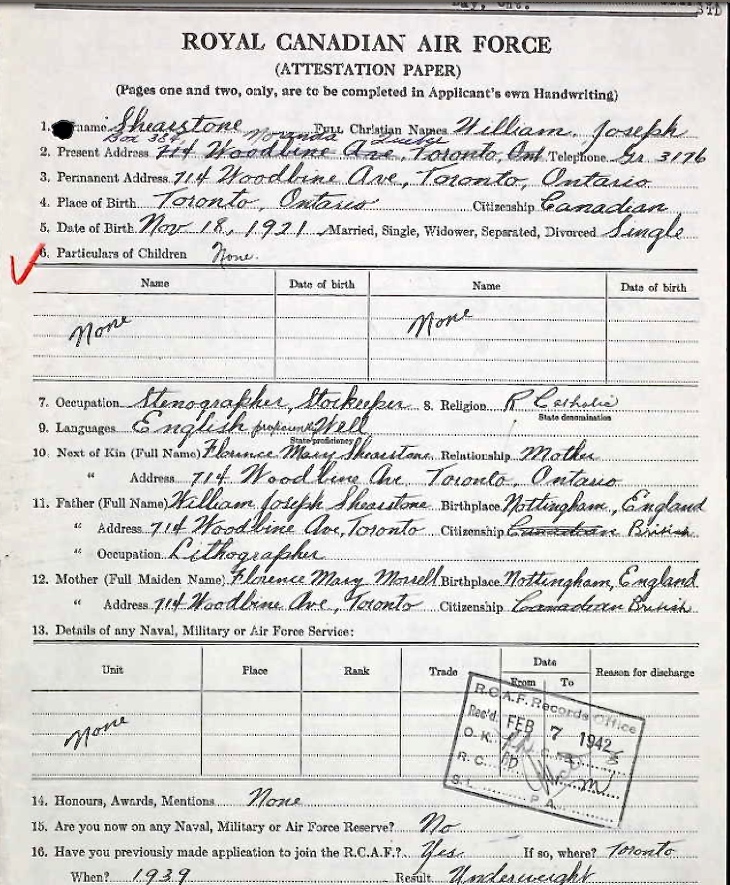 Bay, Ont.
ROYAL CANADIAN AIR FORCE
(ATTESTATION PAPER)
(Pages one and two, only, are to be completed in Applicant's own Handwriting)
1. rname Shearstone Full Christian Names William Joseph
Box 384 Noranda Quebec
2. Present Address 714 Woodbine Ave, Toronto, Ont Telephone Gr 3176
3. Permanent Address 714 Woodbine Ave, Toronto, Ontario
4. Place of Birth Toronto, Ontario Citizenship Canadian
5. Date of Birth Nov 18, 1921 Married, Single, Widower, Separated, Divorced Single
6. Particulars of Children None.
Name Date of birth Name Date of birth
None None
7. Occupation Stenographer, Storkeeper 8. Religion R Catholic
State denomination
9. Languages English proficiently Well
State proficiency
10. Next of Kin (Full Name) Florence Mary Shearstone Relationship Mother
" Address 714 Woodbine Ave Toronto, Ontario
11. Father (Full Name) William Joseph Shearstone Birthplace Nottingham, England
" Address 714 Woodbine Ave, Toronto Citizenship Canadian British
" Occupation Lithographer
12. Mother (Full Maiden Name) Florence Mary Morrell Birthplace Nottingham, England
" Address 714 Woodbine Ave, Toronto Citizenship Canadian British
13. Details of any Naval, Military or Air Force Service:
Unit Place Rank Trade Date From To Reason for discharge
None
R.C.A.F. Records Office
Rec'd. FEB 7 1942
O.K.
R.C.
S.L. P.A.
14. Honours, Awards, Mentions None
15. Are you now on any Naval, Military or Air Force Reserve? No
16. Have you previously made application to join the R.C.A.F.? Yes If so, where? Toronto
When? 1939 Result Underweight